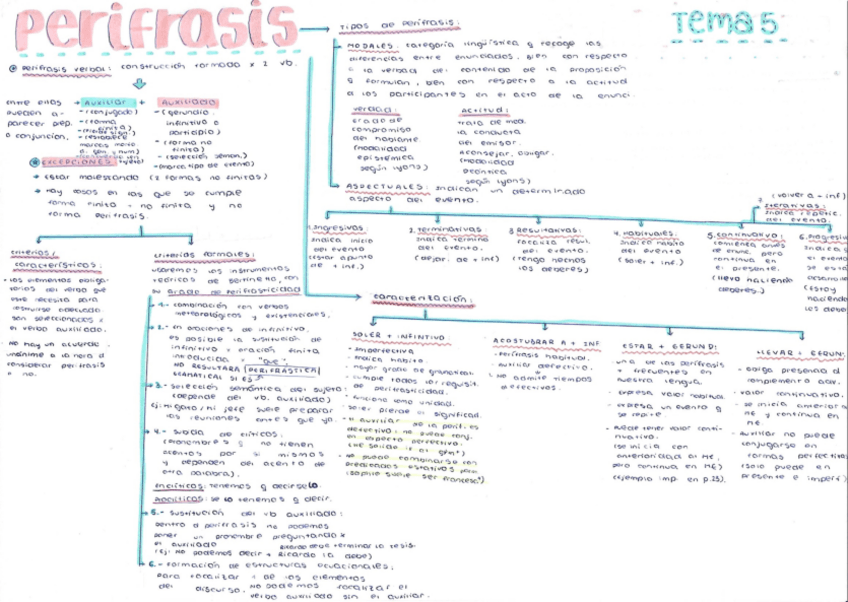 perifrasis
Tema 5
perifrasis verbal: construcción formada x 2 vb.
entre ellos pueden aparecer prep. o conjuncion.
Auxiliar + Auxiliado
- (conjugado)
- (forma finita)
- (gerundio, infinitivo o participio)
- (forma no finita)
- (selección semán.)
EXCEPCIONES
→ estar molestando (2 formas no finitas)
→ hay casos en los que se cumple
forma finita - no finita y no
forma perifrasis.
criterios/
características:
los elementos
del verbo que
este necesita para
son seleccionados x
el verbo auxiliado.
no hay un acuerdo
unánime a la hora d
considerar perifrasis
o no.
criterios formales:
usaremos los instrumentos
teóricos de
su grado de perifrasticidad
1.- combinación con verbos
meteorológicos y existenciales.
2.- en oraciones de infinitivo,
es posible la sustitución de
infinitivo → oración finita
introducida x "que".
NO RESULTARÁ PERIFRÁSTICA/
GRAMATICAL SI ES
3.- selección semántica del sujeto:
(depende del vb. auxiliado)
ej: mi gato/mi jefe suele preparar
las reuniones antes que yo.
4.- subida de clíticos:
(pronombres q no tienen
acentos por sí mismos
y dependen del acento de
otra palabra).
Enclíticos: tenemos q decirselo.
Proclíticos: se lo tenemos q decir.
5.- sustitución del vb auxiliado:
dentro d perifrasis no podemos
poner un pronombre preguntando x
el auxiliado
Ricardo debe terminar la tesis.
(ej: No podemos decir → Ricardo la debe)
6.- formación de estructuras ecuacionales:
para focalizar 1 de los elementos
del discurso. No podemos focalizar el
verbo auxiliado sin el auxiliar.
tipos de perifrasis:
MODALES: categoría lingüística q recoge las
diferencias entre enunciados, bien con respecto
a la verdad del contenido de la proposición
q formulan, bien con respecto a la actitud
d los participantes en el acto de la enunci.
verdad:
grado de
compromiso
del hablante.
(modalidad
epistémica
según Lyons)
Actitud:
trata de mod.
la conducta
del emisor.
Aconsejar, obligar.
(modalidad
deóntica
según Lyons)
ASPECTUALES: indican un determinado
aspecto del evento.
1. Ingresivas:
indica inicio
del evento
(estar a punto
de + inf.)
2. terminativas
indica término
del evento
(dejar de + inf)
3. Resultativas:
focaliza resul.
del evento.
(tengo hechos
los deberes)
4. habituales:
indica hábito
del evento
(soler + inf.)
5. continuativa:
comienza antes
de enunc. pero
continua en
el presente.
(llevo haciendo
deberes)
6. progresiva
indica q
el evento
se está
(estoy
haciendo
los debe
7. (volver a + inf)
Iterativas:
indica repetic.
del evento.
caracterización:
SOLER + INFINITIVO
- imperfectiva
- indica hábito.
- mayor grado de gramatical.
- cumple todos los requisit.
de perifrasticidad.
- funciona como unidad.
- soler pierde su significad.
- el auxiliar de la perif. es
defectivo: no puede conj.
en aspecto perfectivo.
- no puede combinarse con
predicados estativos
(Sophie suele ser francesa*)
ACOSTUMBRAR A + INF
- perifrasis habitual.
- auxiliar defectivo.
- No admite tiempos
perfectivos.
ESTAR + GERUNDI:
- una de las perifrasis
+ frecuentes en
nuestra lengua.
- expresa valor habitual.
- expresa un evento q
se repite
- puede tener valor conti-
nuativo.
(se inicia con
anterioridad al ME,
pero continua en ME)
(ejemplo imp. en p.25).
LLEVAR + GERUN:
- exige presencia d
complemento adv.
- valor continuativo.
- se inicia anterior a
ME y continua en
ME.
- Auxiliar no puede
conjugarse en
formas perfectivas
(solo puede en
presente e imperf)